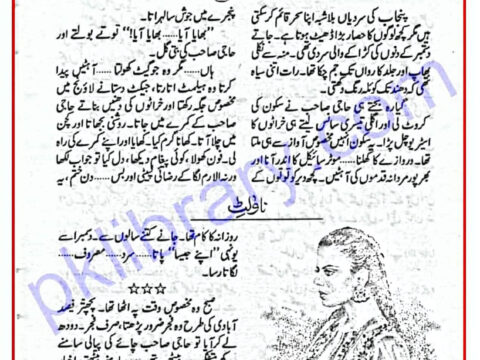 پنجاب کی سردیاں بلاشبہ اپنا سحر قائم کر سکتی
ہیں مگر کچھ لوگوں کا حصار بڑا ڈھیٹ ہوتا ہے۔ جاتے
دسمبر کے دنوں کی کڑاکے والی سردی تھی۔ منہ سے نکلی
بھاپ اور جلد کا رواں تک جم چکا تھا۔ رات اتنی سیاہ
تھی کہ دھند تک کو نگل رہی تھی۔
گیارہ بجتے ہی حاجی صاحب نے سکون کی
کروٹ لی اور اگلی تیسری سانس لیتے ہی خراٹوں کا
اسٹریو چل پڑا۔ یہ سکون انہیں مخصوص آواز سے ہی ملتا
تھا۔ دروازے کا کھلنا...... موٹر سائیکل کا اندر آنا اور
بھرپور مردانہ قدموں کی آہٹیں۔ کچھ دیر کو توتوں کے
پنجرے میں جوش سا لہراتا۔
"بھایا آیا...... بھایا آیا!" توتے بولتے اور
حاجی صاحب کی بتی گل۔
ہاں...... مگر وہ جو گیٹ کھولتا...... آہٹیں پیدا
کرتا وہ ہیلمٹ اتارتا، جیکٹ دستانے لاؤنج میں
مخصوص جگہ رکھتا اور خراٹوں کی دھنیں بناتے حاجی
صاحب کے کمرے میں جاتا۔ روشنی بجھاتا اور کچن
میں چلا آتا۔ کھانا گرم کیا۔ کھایا اور اپنے کمرے کی راہ
لی۔ فون کھولا، کوئی پیغام دیکھا، دل کیا تو جواب لکھا
ورنہ الارم لگا کے رضائی لپیٹی اور بس...... دن ختم، یہ
ناولٹ
روزانہ کا کام تھا۔ جانے کتنے سالوں سے۔ دسمبر اسے
یونہی "اپنے جیسا" پاتا...... سرد...... مصروف......
لگا تار سا۔
☆☆☆
صبح وہ مخصوص وقت پہ اٹھا تھا۔ پچھتر فیصد
آبادی کی طرح وہ فجر ضرور پڑھتا، صرف فجر۔ دودھ
لے کر آیا تو حاجی صاحب چائے کی پیالی سامنے
pklibrary.com